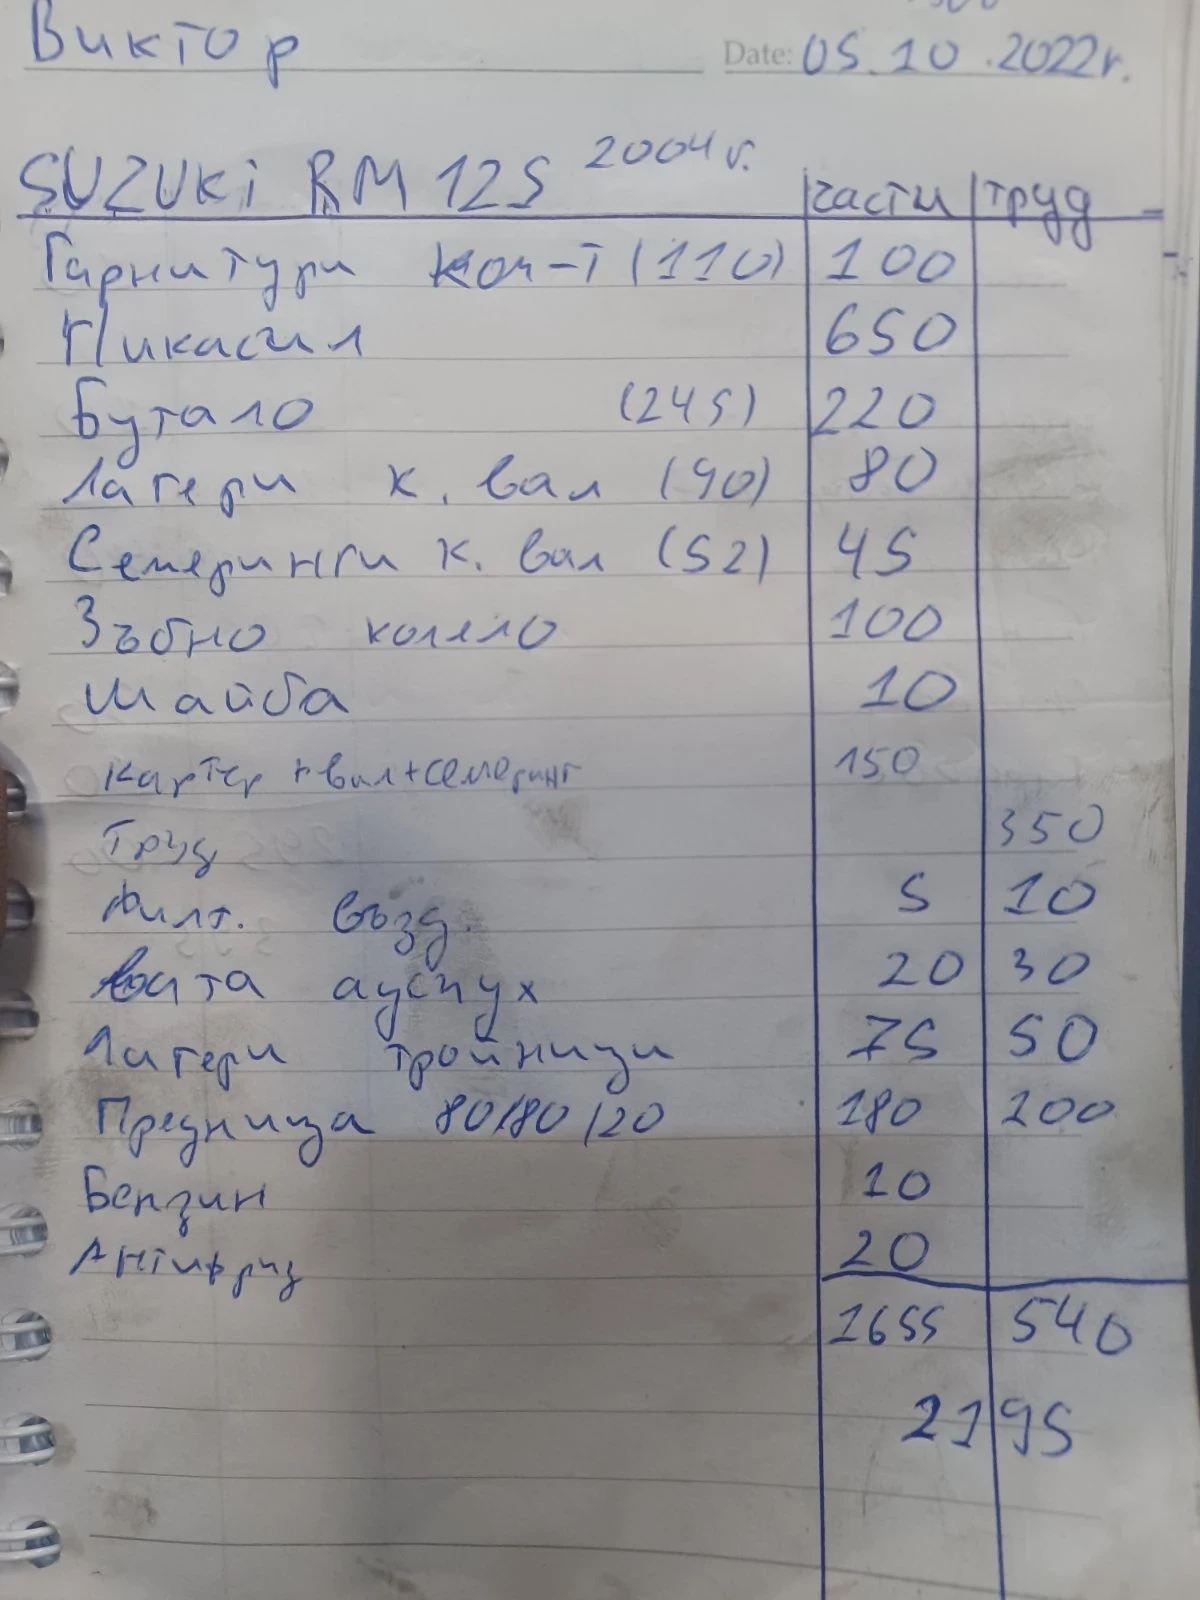 Виктор
Date: 05.10.2022г.
SUZUKi RM 125 2004г.
части труд
Гарнитури ком-т (110) 100
Никасил 650
Бутало (245) 220
Лагери к. вал (90) 80
Семеринги к. вал (52) 45
Зъбно колело 100
Шайба 10
картер + вал + семеринг 150
Труд 350
Филт. възд. 5 10
Вата ауспух 20 30
Лагери тройници 75 50
Предница 80/80/20 180 100
Бензин 10
Антифриз 20
1655 540
2195